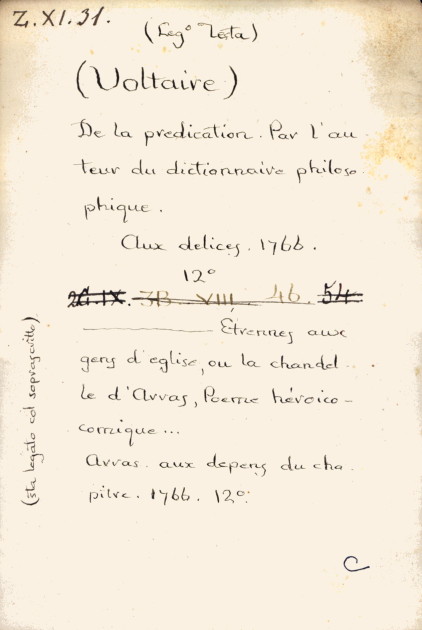 Z. XI. 31.
(Leg° Zeta)
(Voltaire)
De la predication. Par l'au
teur du dictionnaire philoso
phique.
Aux delices. 1766.
12°
IX. 3B VIII. 46. 54
Étrennes aux
gens d'eglise, ou la chandel..
le d'Arras, Poeme héroico-
comique...
Arras. aux depens du cha.
pitre. 1766. 12°.
(sta legato col soprascritto)
C